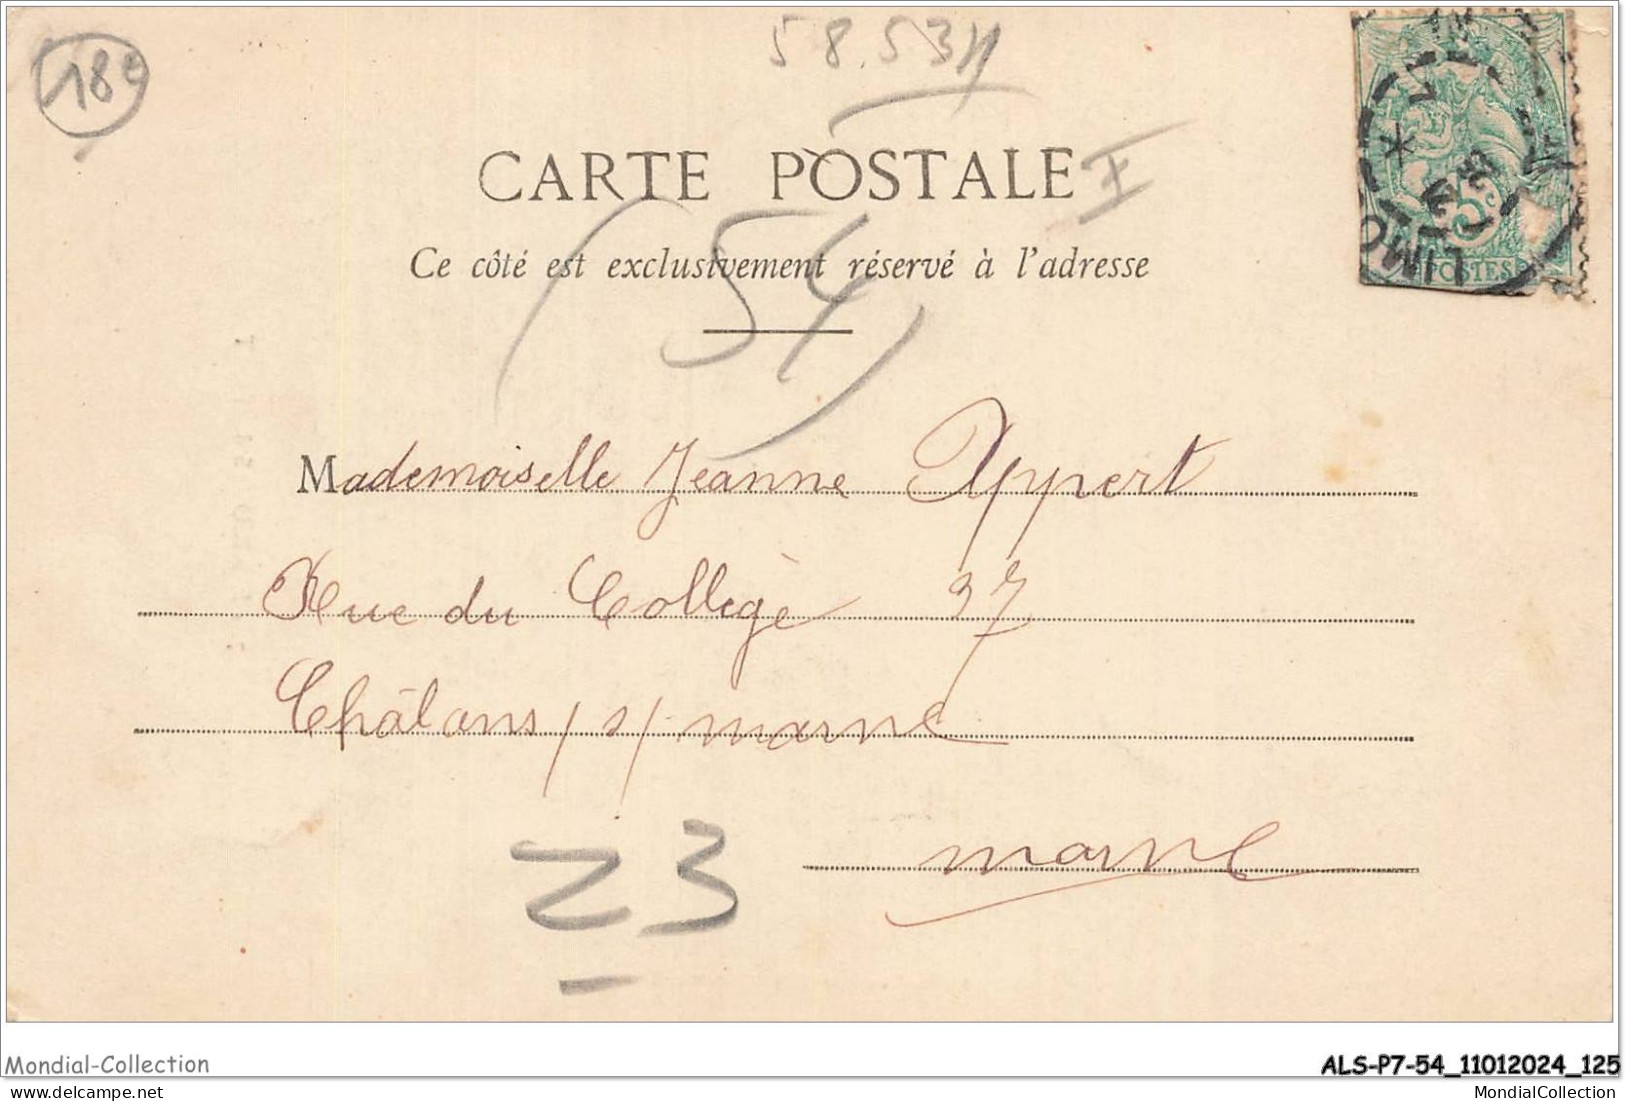 18e
58.53
CARTE POSTALE
Ce côté est exclusivement réservé à l'adresse
(54)
Mademoiselle Jeanne Appert
Rue du Collège 37
Châlons /s/ marne
marne
Z3
5c
POSTES
LIMO
Mondial-Collection
ALS-P7-54_11012024_125
MondialCollection